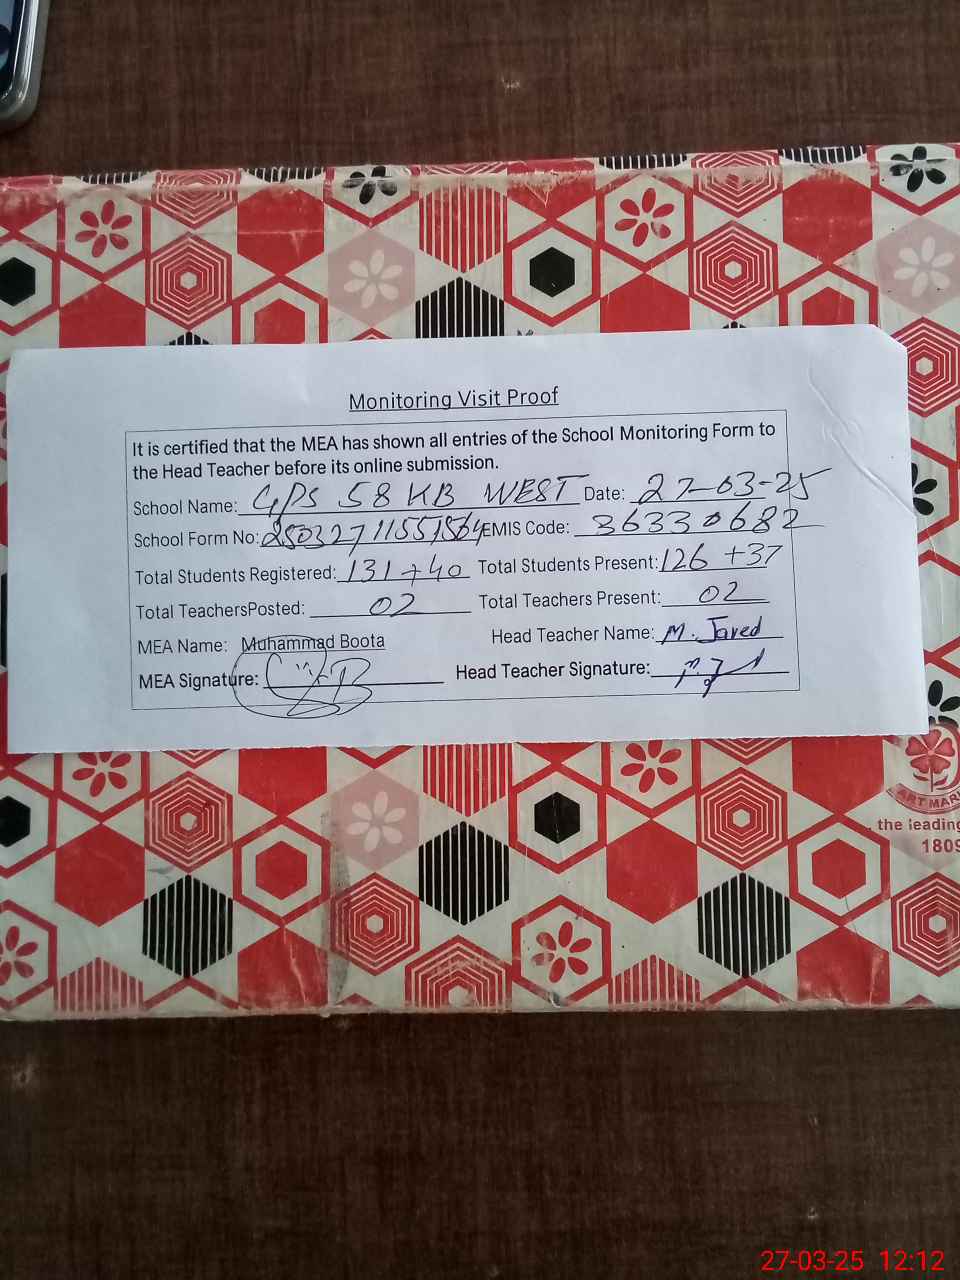 Monitoring Visit Proof
It is certified that the MEA has shown all entries of the School Monitoring Form to
the Head Teacher before its online submission.
School Name: GPS 58 KB WEST Date: 27-03-25
School Form No: EMIS Code: 36330682
Total Students Registered: 131+40 Total Students Present: 126 +37
Total TeachersPosted: 02 Total Teachers Present: 02
MEA Name: Muhammad Boota Head Teacher Name: M. Javed
MEA Signature: Head Teacher Signature:
ART MAR
the leading
1809
27-03-25 12:12